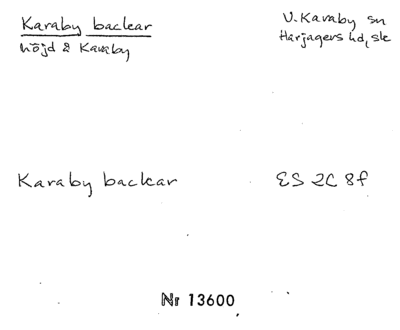 Karaby backar
V. Karaby sn
höjd å Karaby
Harjagers hd, sk
Karaby backar
ES 2C 8f
Nr 13600